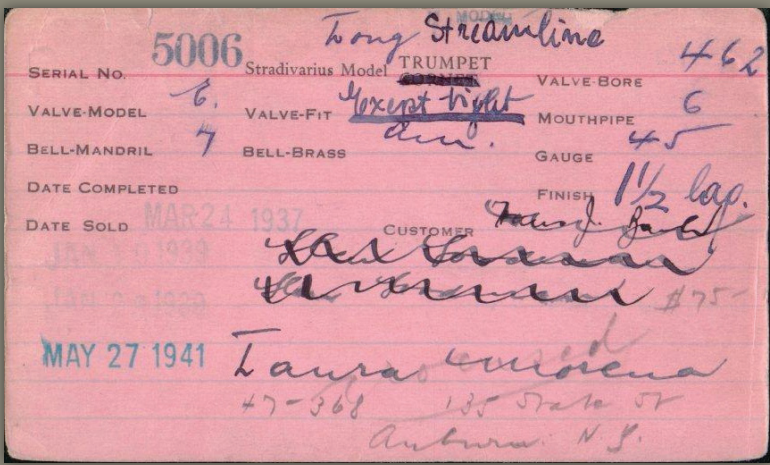 MODEL
Long Streamline
SERIAL NO. 5006 Stradivarius Model TRUMPET CORNET VALVE-BORE 462
VALVE-MODEL 6. VALVE-FIT Except tight MOUTHPIPE 6
BELL-MANDRIL 7 BELL-BRASS Am. GAUGE 45
DATE COMPLETED FINISH 1 1/2 lap.
DATE SOLD MAR 24 1937 CUSTOMER
JAN 10 1939
JAN 1939 $75-
MAY 27 1941 Laura Morena
47-368 135 State St
Auburn N.Y.